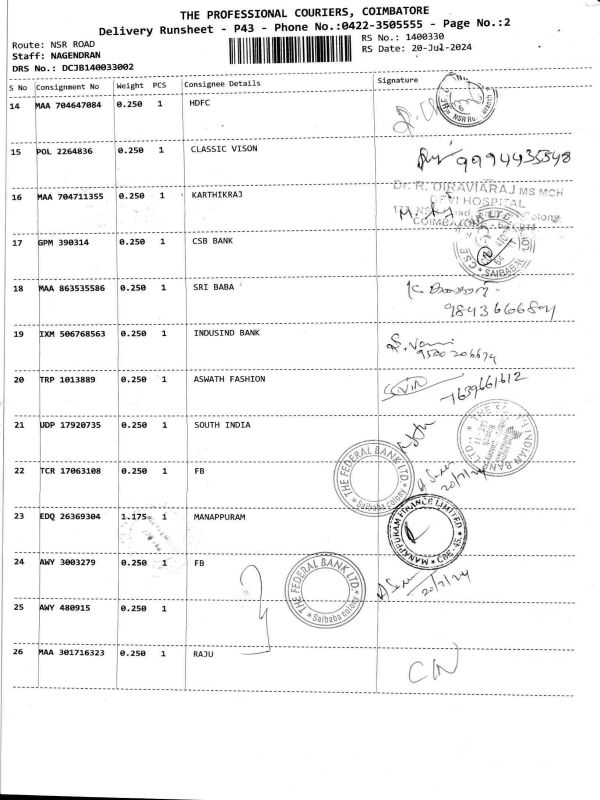 THE PROFESSIONAL COURIERS, COIMBATORE
Delivery Runsheet - P43 - Phone No.:0422-3505555 - Page No.:2
Route: NSR ROAD
RS No.: 1400330
Staff: NAGENDRAN
RS Date: 20-Jul-2024
DRS No.: DCJB140033002
S No Consignment No Weight PCS Consignee Details Signature
14 MAA 704647084 0.250 1 HDFC
15 POL 2264836 0.250 1 CLASSIC VISON 9994435548
16 MAA 704711355 0.250 1 KARTHIKRAJ
Dr. R. OIRAVIARAJ MS MCH
HOSPITAL
17 GPM 390314 0.250 1 CSB BANK
18 MAA 863535586 0.250 1 SRI BABA
19 IXM 506768563 0.250 1 INDUSIND BANK
20 TRP 1013889 0.250 1 ASWATH FASHION 7639661612
21 UDP 17920735 0.250 1 SOUTH INDIA
22 TCR 17063108 0.250 1 FB
THE FEDERAL BANK LTD.
Saibaba colony
20/7/24
23 EDQ 26369304 1.175 1 MANAPPURAM
MANAPPURAM FINANCE LIMITED
CBE-45
24 AWY 3003279 0.250 1 FB
THE FEDERAL BANK LTD.
Saibaba colony
20/7/24
25 AWY 480915 0.250 1
26 MAA 301716323 0.250 1 RAJU